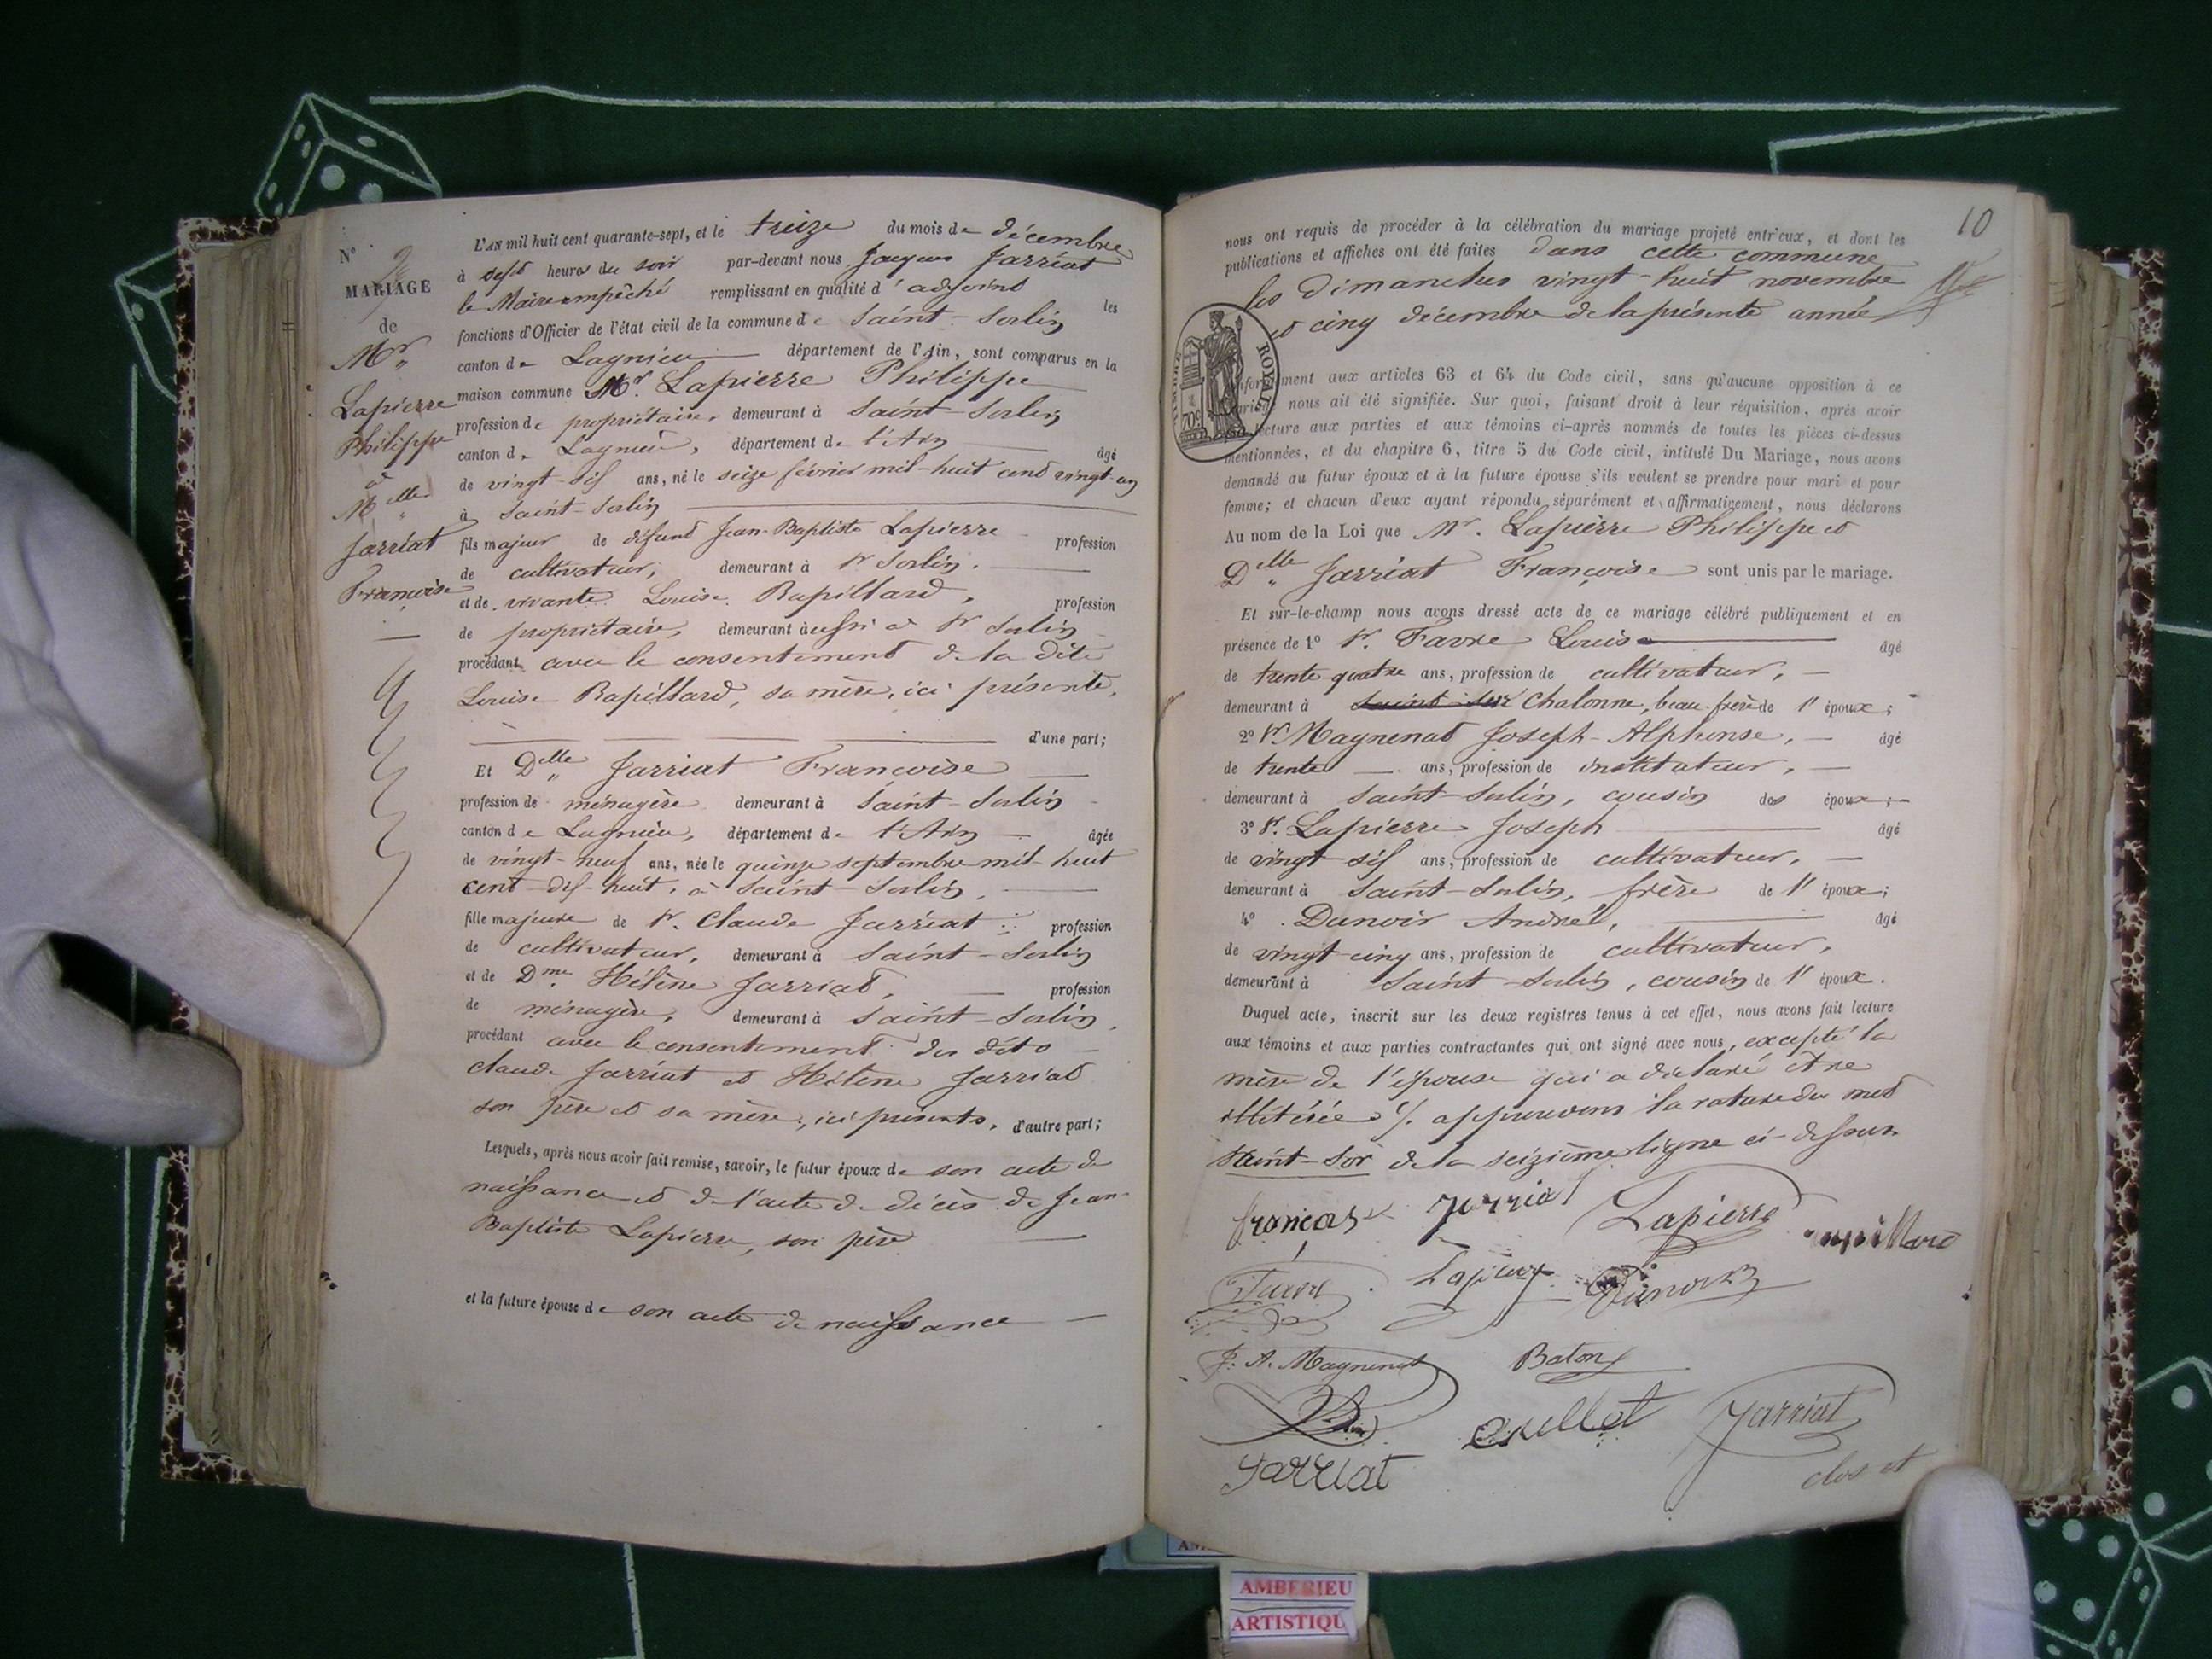 N° 9
MARIAGE
de
Mr
Lapierre
Philippe
à
Melle
Jarriat
Françoise
L'AN mil huit cent quarante-sept, et le treize du mois de décembre
à sept heures du soir par-devant nous Jacques Jarriat
le Maire empêché remplissant en qualité d'adjoint les
fonctions d'Officier de l'état civil de la commune de Saint-Sorlin
canton de Lagnieu département de l'Ain, sont comparus en la
maison commune Mr. Lapierre Philippe
profession de propriétaire, demeurant à Saint-Sorlin
canton de Lagnieu, département de l'Ain âgé
de vingt-six ans, né le seize février mil-huit cent vingt-un
à Saint-Sorlin
fils majeur de défunt Jean-Baptiste Lapierre profession
de cultivateur, demeurant à St Sorlin.
et de vivante Louise Rapillard, profession
de propriétaire, demeurant aussi à St Sorlin
procédant avec le consentement de la dite
Louise Rapillard, sa mère, ici présente,
d'une part;
Et Delle Jarriat Françoise
profession de ménagère demeurant à Saint-Sorlin
canton de Lagnieu, département de l'Ain âgée
de vingt-neuf ans, née le quinze septembre mil-huit
cent-dix-huit, à Saint-Sorlin,
fille majeure de Sr. Claude Jarriat profession
de cultivateur, demeurant à Saint-Sorlin
et de Dme. Hélène Jarriat, profession
de ménagère, demeurant à Saint-Sorlin,
procédant avec le consentement des dits
Claude Jarriat et Hélène Jarriat
son père et sa mère, ici présents, d'autre part;
Lesquels, après nous avoir fait remise, savoir, le futur époux de son acte de
naissance et de l'acte de décès de Jean-
Baptiste Lapierre, son père
et la future épouse de son acte de naissance
10
nous ont requis de procéder à la célébration du mariage projeté entr'eux, et dont les
publications et affiches ont été faites dans cette commune
les dimanches vingt-huit novembre
et cinq décembre de la présente année
TIMBRE ROYAL
70c
conformément aux articles 63 et 64 du Code civil, sans qu'aucune opposition à ce
mariage nous ait été signifiée. Sur quoi, faisant droit à leur réquisition, après avoir
lecture aux parties et aux témoins ci-après nommés de toutes les pièces ci-dessus
mentionnées, et du chapitre 6, titre 5 du Code civil, intitulé Du Mariage, nous avons
demandé au futur époux et à la future épouse s'ils veulent se prendre pour mari et pour
femme; et chacun d'eux ayant répondu séparément et affirmativement, nous déclarons
Au nom de la Loi que Mr. Lapierre Philippe et
Delle Jarriat Françoise sont unis par le mariage.
Et sur-le-champ nous avons dressé acte de ce mariage célébré publiquement et en
présence de 1° Sr. Favre Louis âgé
de trente quatre ans, profession de cultivateur,
demeurant à Saint-Sor Chalonne, beau-frère de l'époux;
2° Sr Magnenat Joseph-Alphonse, âgé
de trente ans, profession de instituteur,
demeurant à Saint-Sorlin, cousin des époux;
3° Sr. Lapierre Joseph âgé
de vingt-six ans, profession de cultivateur,
demeurant à Saint-Sorlin, frère de l'époux;
4° Dunoir André, âgé
de vingt-cinq ans, profession de cultivateur,
demeurant à Saint-Sorlin, cousin de l'époux.
Duquel acte, inscrit sur les deux registres tenus à cet effet, nous avons fait lecture
aux témoins et aux parties contractantes qui ont signé avec nous, excepté la
mère de l'épouse qui a déclaré être
illitérée ./. approuvons la rature du mot
Saint-Sor de la seizième ligne ci-dessus
françoise jarriat Lapierre rapillard
Favre Lapierre Dunoir
J. A. Magnenat Baton
Jarriat
Jarriat
clos et
AMBERIEU
ARTISTIQU